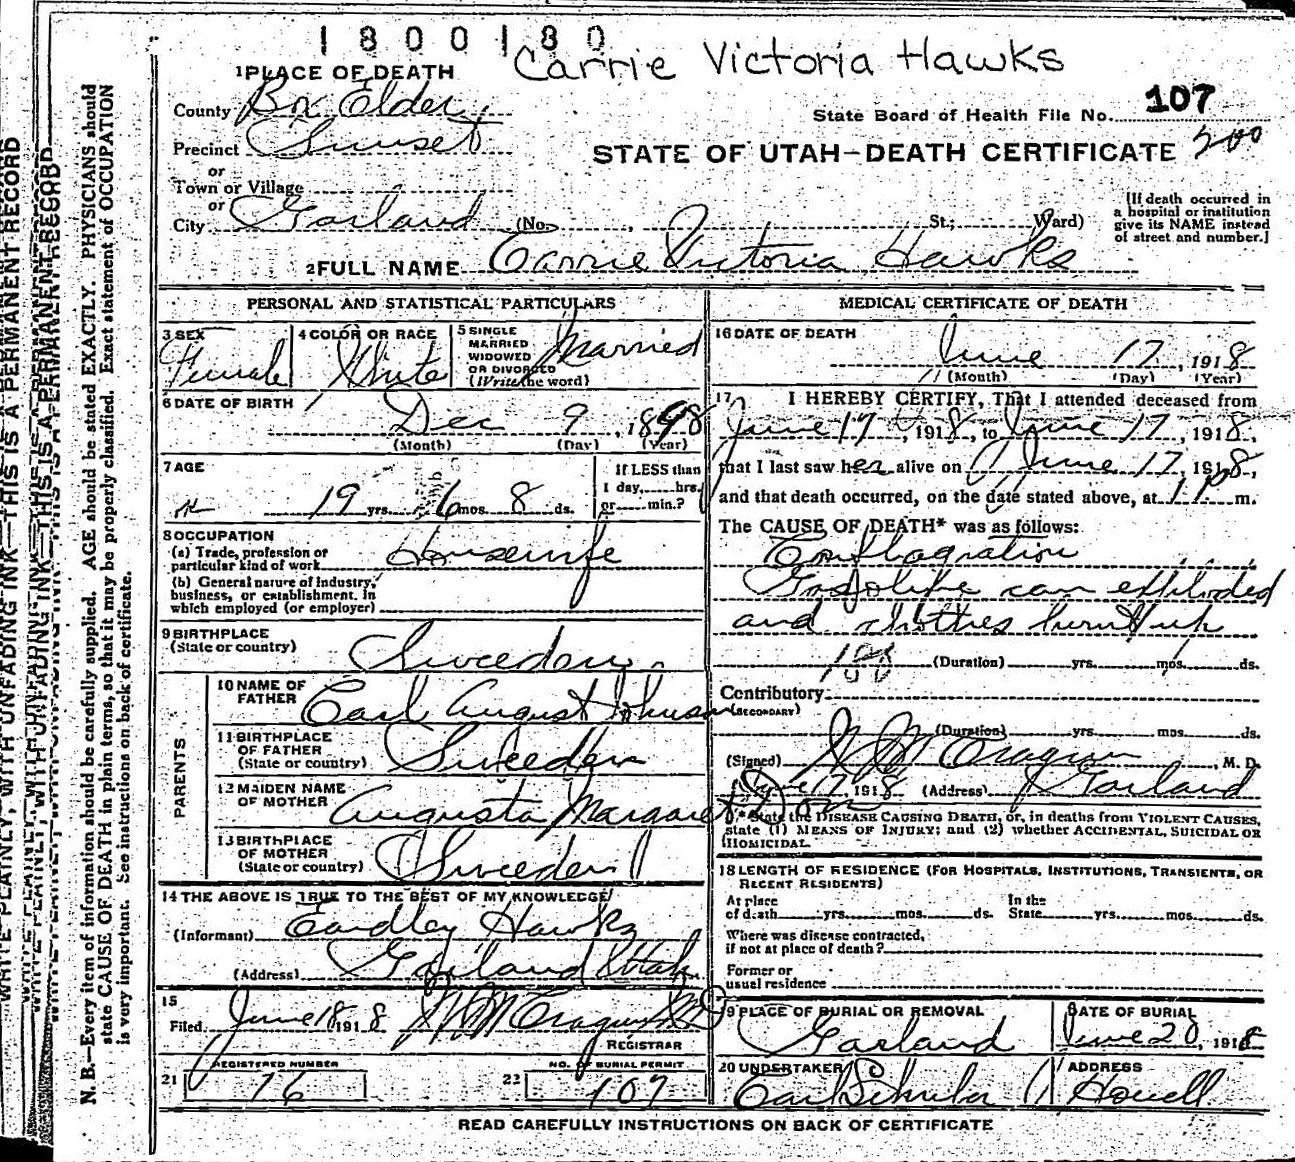 1800180
Carrie Victoria Hawks
1 PLACE OF DEATH
County Box Elder
State Board of Health File No. 107
Precinct Sunset
STATE OF UTAH—DEATH CERTIFICATE 200
or
Town or Village
or
City Garland (No. , St.; Ward)
[If death occurred in
a hospital or institution
give its NAME instead
of street and number.]
2 FULL NAME Carrie Victoria Hawks
PERSONAL AND STATISTICAL PARTICULARS
3 SEX Female
4 COLOR OR RACE White
5 SINGLE
MARRIED
WIDOWED
OR DIVORCED
(Write the word) Married
6 DATE OF BIRTH
Dec 9, 1898
(Month) (Day) (Year)
7 AGE
19 yrs. 6 mos. 8 ds.
If LESS than
1 day, hrs.
or min.?
8 OCCUPATION
(a) Trade, profession or
particular kind of work Housewife
(b) General nature of industry,
business, or establishment, in
which employed (or employer)
9 BIRTHPLACE
(State or country) Sweeden
PARENTS
10 NAME OF
FATHER Carl August Johnson
11 BIRTHPLACE
OF FATHER
(State or country) Sweeden
12 MAIDEN NAME
OF MOTHER Augusta Margaret
13 BIRTHPLACE
OF MOTHER
(State or country) Sweeden
14 THE ABOVE IS TRUE TO THE BEST OF MY KNOWLEDGE
(Informant) Eardley Hawks
(Address) Garland Utah
15
Filed June 18 1918
REGISTRAR
21 REGISTERED NUMBER
76
22 NO. OF BURIAL PERMIT
107
MEDICAL CERTIFICATE OF DEATH
16 DATE OF DEATH
June 17, 1918
(Month) (Day) (Year)
17 I HEREBY CERTIFY, That I attended deceased from
June 17, 1918, to June 17, 1918,
that I last saw her alive on June 17, 1918,
and that death occurred, on the date stated above, at m.
The CAUSE OF DEATH* was as follows:
Conflagration
Gasoline can exploded
and clothes burnt up
188 (Duration) yrs. mos. ds.
Contributory
(SECONDARY)
(Duration) yrs. mos. ds.
(Signed) M.D.
June 17, 1918 (Address) Garland
*State the DISEASE CAUSING DEATH, or, in deaths from VIOLENT CAUSES,
state (1) MEANS OF INJURY; and (2) whether ACCIDENTAL, SUICIDAL OR
HOMICIDAL.
18 LENGTH OF RESIDENCE (FOR HOSPITALS, INSTITUTIONS, TRANSIENTS, OR
RECENT RESIDENTS)
At place
of death yrs. mos. ds.
In the
State yrs. mos. ds.
Where was disease contracted,
if not at place of death?
Former or
usual residence
19 PLACE OF BURIAL OR REMOVAL
Garland
DATE OF BURIAL
June 20, 1918
20 UNDERTAKER
ADDRESS
Howell
READ CAREFULLY INSTRUCTIONS ON BACK OF CERTIFICATE
WRITE PLAINLY, WITH UNFADING INK—THIS IS A PERMANENT RECORD
N. B.—Every item of information should be carefully supplied. AGE should be stated EXACTLY. PHYSICIANS should
state CAUSE OF DEATH in plain terms, so that it may be properly classified. Exact statement of OCCUPATION
is very important. See instructions on back of certificate.